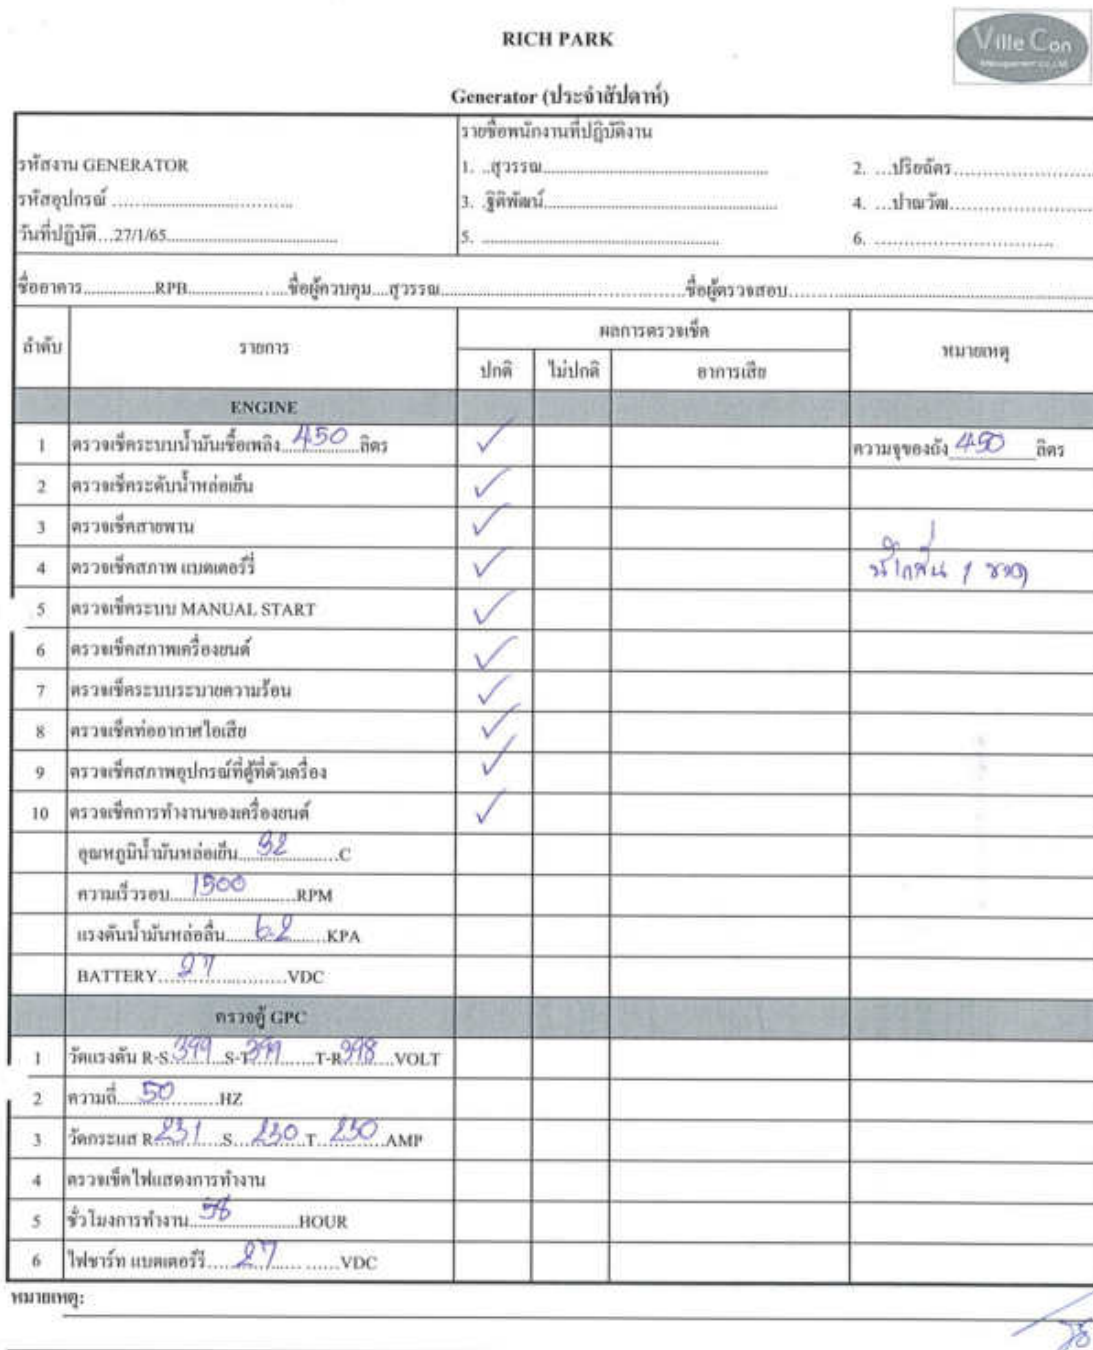 RICH PARK
Ville Con
Management Co.,Ltd.
Generator (ประจำสัปดาห์)
รหัสงาน GENERATOR
รหัสอุปกรณ์ ..............................
วันที่ปฏิบัติ...27/1/65..............................
รายชื่อพนักงานที่ปฏิบัติงาน
1. ..สุวรรณ..............................
2. ...ปริยฉัตร..............................
3. .ฐิติพัฒน์..............................
4. ...ปาณวัฒ..............................
5. ..............................
6. ..............................
ชื่ออาคาร.................RPB......................ชื่อผู้ควบคุม....สุวรรณ..............................ชื่อผู้ตรวจสอบ..............................
ลำดับ รายการ ผลการตรวจเช็ค หมายเหตุ
ปกติ ไม่ปกติ อาการเสีย
ENGINE
1 ตรวจเช็คระบบน้ำมันเชื้อเพลิง...450...ลิตร ✓ ความจุของถัง 450 ลิตร
2 ตรวจเช็คระดับน้ำหล่อเย็น ✓
3 ตรวจเช็คสายพาน ✓
4 ตรวจเช็คสภาพ แบตเตอร์รี่ ✓ น้ำกลั่น 1 ขวด
5 ตรวจเช็คระบบ MANUAL START ✓
6 ตรวจเช็คสภาพเครื่องยนต์ ✓
7 ตรวจเช็คระบบระบายความร้อน ✓
8 ตรวจเช็คท่ออากาศไอเสีย ✓
9 ตรวจเช็คสภาพอุปกรณ์ที่ตู้ที่ตัวเครื่อง ✓
10 ตรวจเช็คการทำงานของเครื่องยนต์ ✓
อุณหภูมิน้ำมันหล่อเย็น......C
ความเร็วรอบ...1500...RPM
แรงดันน้ำมันหล่อลื่น...6.2...KPA
BATTERY...27...VDC
ตรวจตู้ GPC
1 วัดแรงดัน R-S...399...S-T...399...T-R...398...VOLT
2 ความถี่...50...HZ
3 วัดกระแส R...231...S...230...T...230...AMP
4 ตรวจเช็คไฟแสดงการทำงาน
5 ชั่วโมงการทำงาน......HOUR
6 ไฟชาร์ท แบตเตอร์รี่...27...VDC
หมายเหตุ: